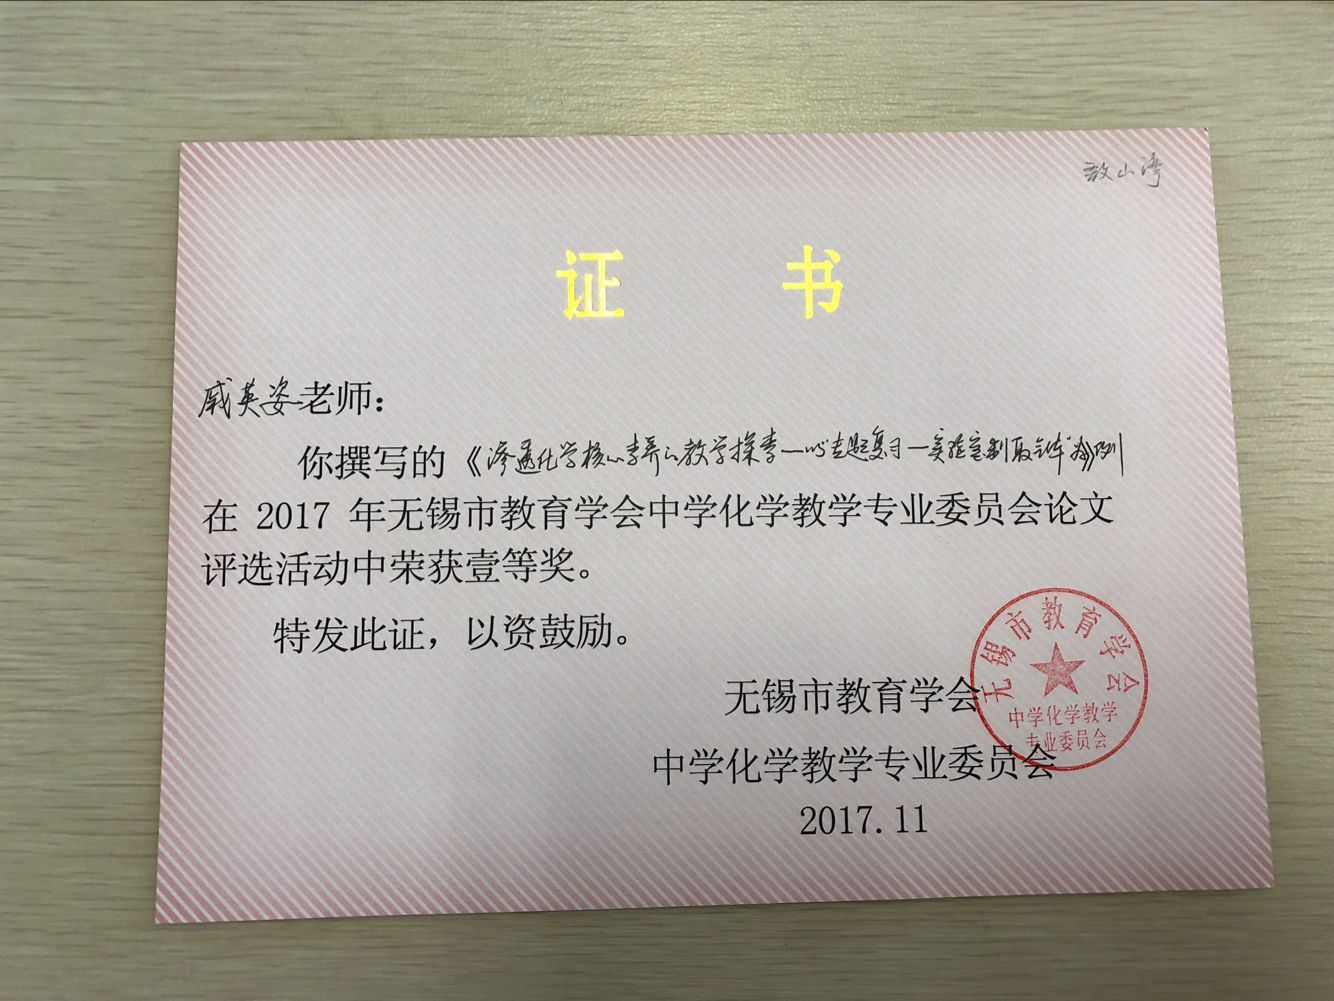 敔山湾
证 书
戚英姿老师:
你撰写的《渗透化学核心素养之教学探季—以专题复习—实验室制取气体”为》例
在 2017 年无锡市教育学会中学化学教学专业委员会论文
评选活动中荣获壹等奖。
特发此证，以资鼓励。
无锡市教育学会
中学化学教学专业委员会
2017.11
无锡市教育学会
中学化学教学
专业委员会